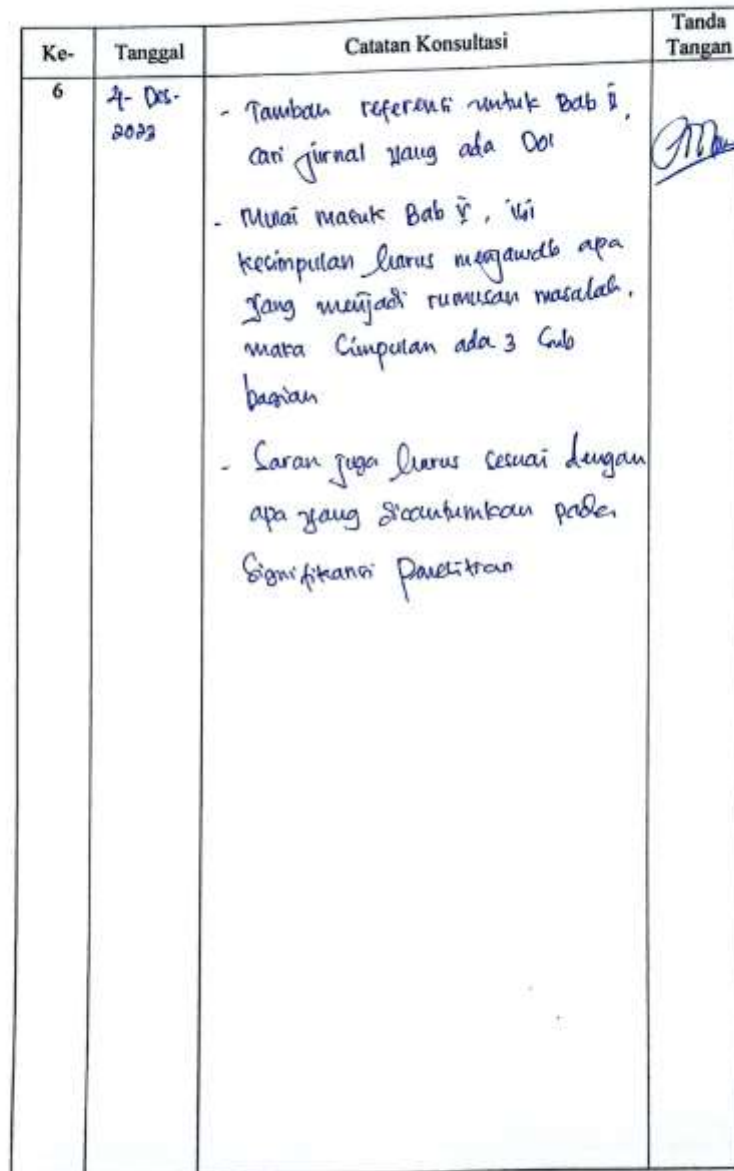 Ke- Tanggal Catatan Konsultasi Tanda Tangan
6 4- Des- 2023
- Tambah referensi untuk Bab II,
cari jurnal yang ada DOI
- Mulai masuk Bab V, isi
kesimpulan harus menjawab apa
yang menjadi rumusan masalah,
maka Simpulan ada 3 Sub
bagian
- Saran juga harus sesuai dengan
apa yang dicantumkan pada
Signifikansi Penelitian